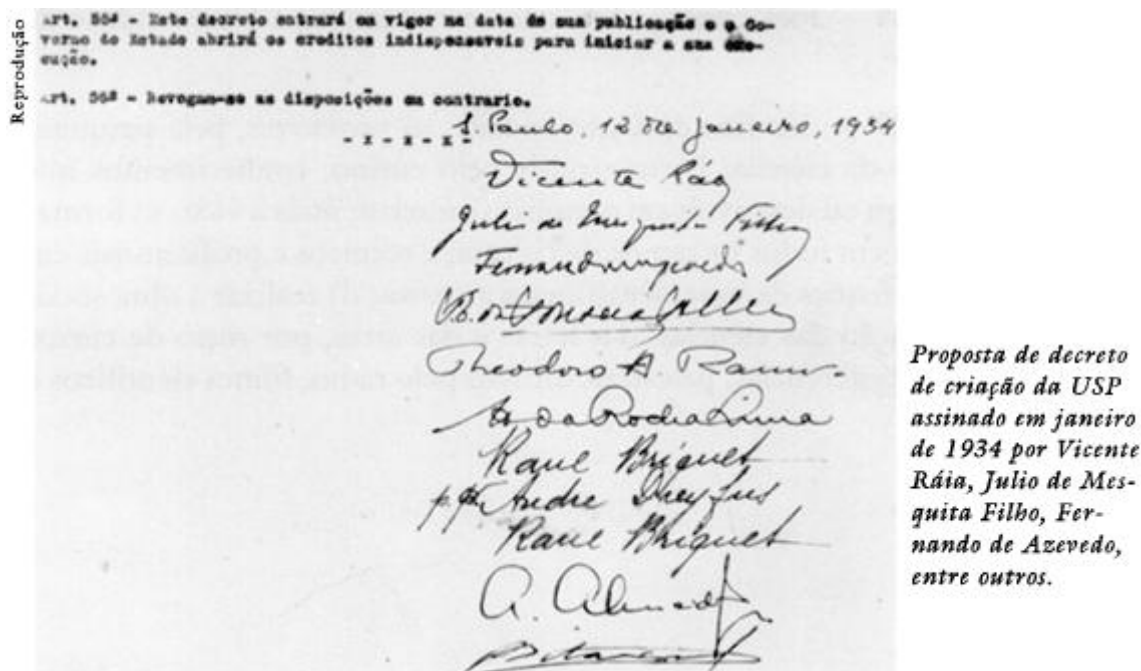 Reprodução
Art. 55º - Este decreto entrará em vigor na data de sua publicação e o Go-
verno do Estado abrirá os creditos indispensaveis para iniciar a sua exe-
cução.
Art. 56º - Revogam-se as disposições em contrario.
- x - x - x -
S. Paulo, 12 de janeiro, 1934
Vicente Ráo
Julio de Mesquita Filho
Fernando de Azevedo
F. da Fonseca Telles
Theodoro A. Ramos
H. da Rocha Lima
Raul Briquet
p.p. Andre Dreyfus
Raul Briquet
A. Almeida
Proposta de decreto
de criação da USP
assinado em janeiro
de 1934 por Vicente
Ráia, Julio de Mes-
quita Filho, Fer-
nando de Azevedo,
entre outros.